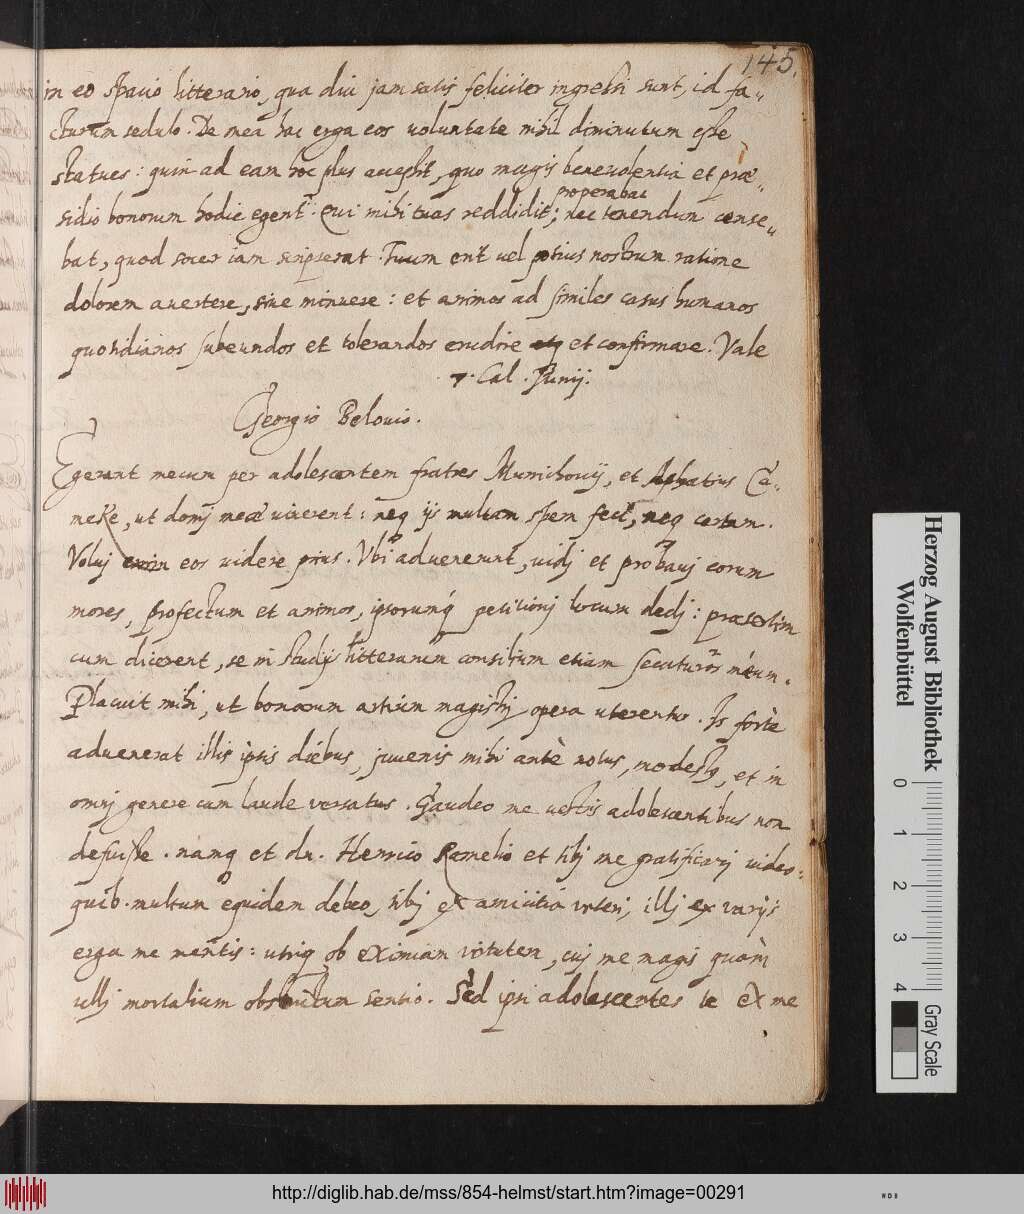 145.
in eo spacio litterario, qua diu jam satis feliciter ingressi sunt, id fa„
cturum sedulo. De mea hac erga eos uoluntate nihil diminutum esse
statues: quin ad eam hoc plus accessit, quo magis beneuolentia et præ„
sidio bonorum hodie egent. Qui mihi tuas reddidit; properabat
nec tenendum cense„
bat, quod socer iam scripserat. Tuum erit uel potius nostrum ratione
dolorem auertere, siue minuere: et animos ad similes casus humanos
quotidianos subeundos et tolerandos erudire et confirmare. Vale
7. Cal. Junij.
Georgio Belouio.
Egerant mecum per adolescentem fratres Munichouij, et Aphatus Ca„
meke, ut domj meæ uiuerent: neq ijs multam spem feci, neq certam.
Voluj enim eos uidere prius. Vbi aduenerunt, uidj et probauj eorum
mores, profectum et animos, ipsorumq́ petitionj locum dedj: præsertim
cum dicerent, se in studijs litterarum consilium etiam secuturos meum.
Placuit mihi, ut bonarum artium magistrj opera uterentur. Is fortè
aduenerat illis ipsis diebus, juuenis mihi antè notus, modestus, et in
omnj genere cum laude versatus. Gaudeo me uestris adolescentibus non
defuisse. namq et dn. Henrico Ramelio et tibj me gratificarj uideo:
quib. multum equidem debeo, tibj ex amicitiâ ueteri, illj ex varijs
erga me meritis: utriq ob eximiam virtutem, cuj me magis quàm
ullj mortalium obstrictum sentio. Sed ipsi adolescentes te ex me
Herzog August Bibliothek
Wolfenbüttel
0 1 2 3 4
Gray Scale
http://diglib.hab.de/mss/854-helmst/start.htm?image=00291